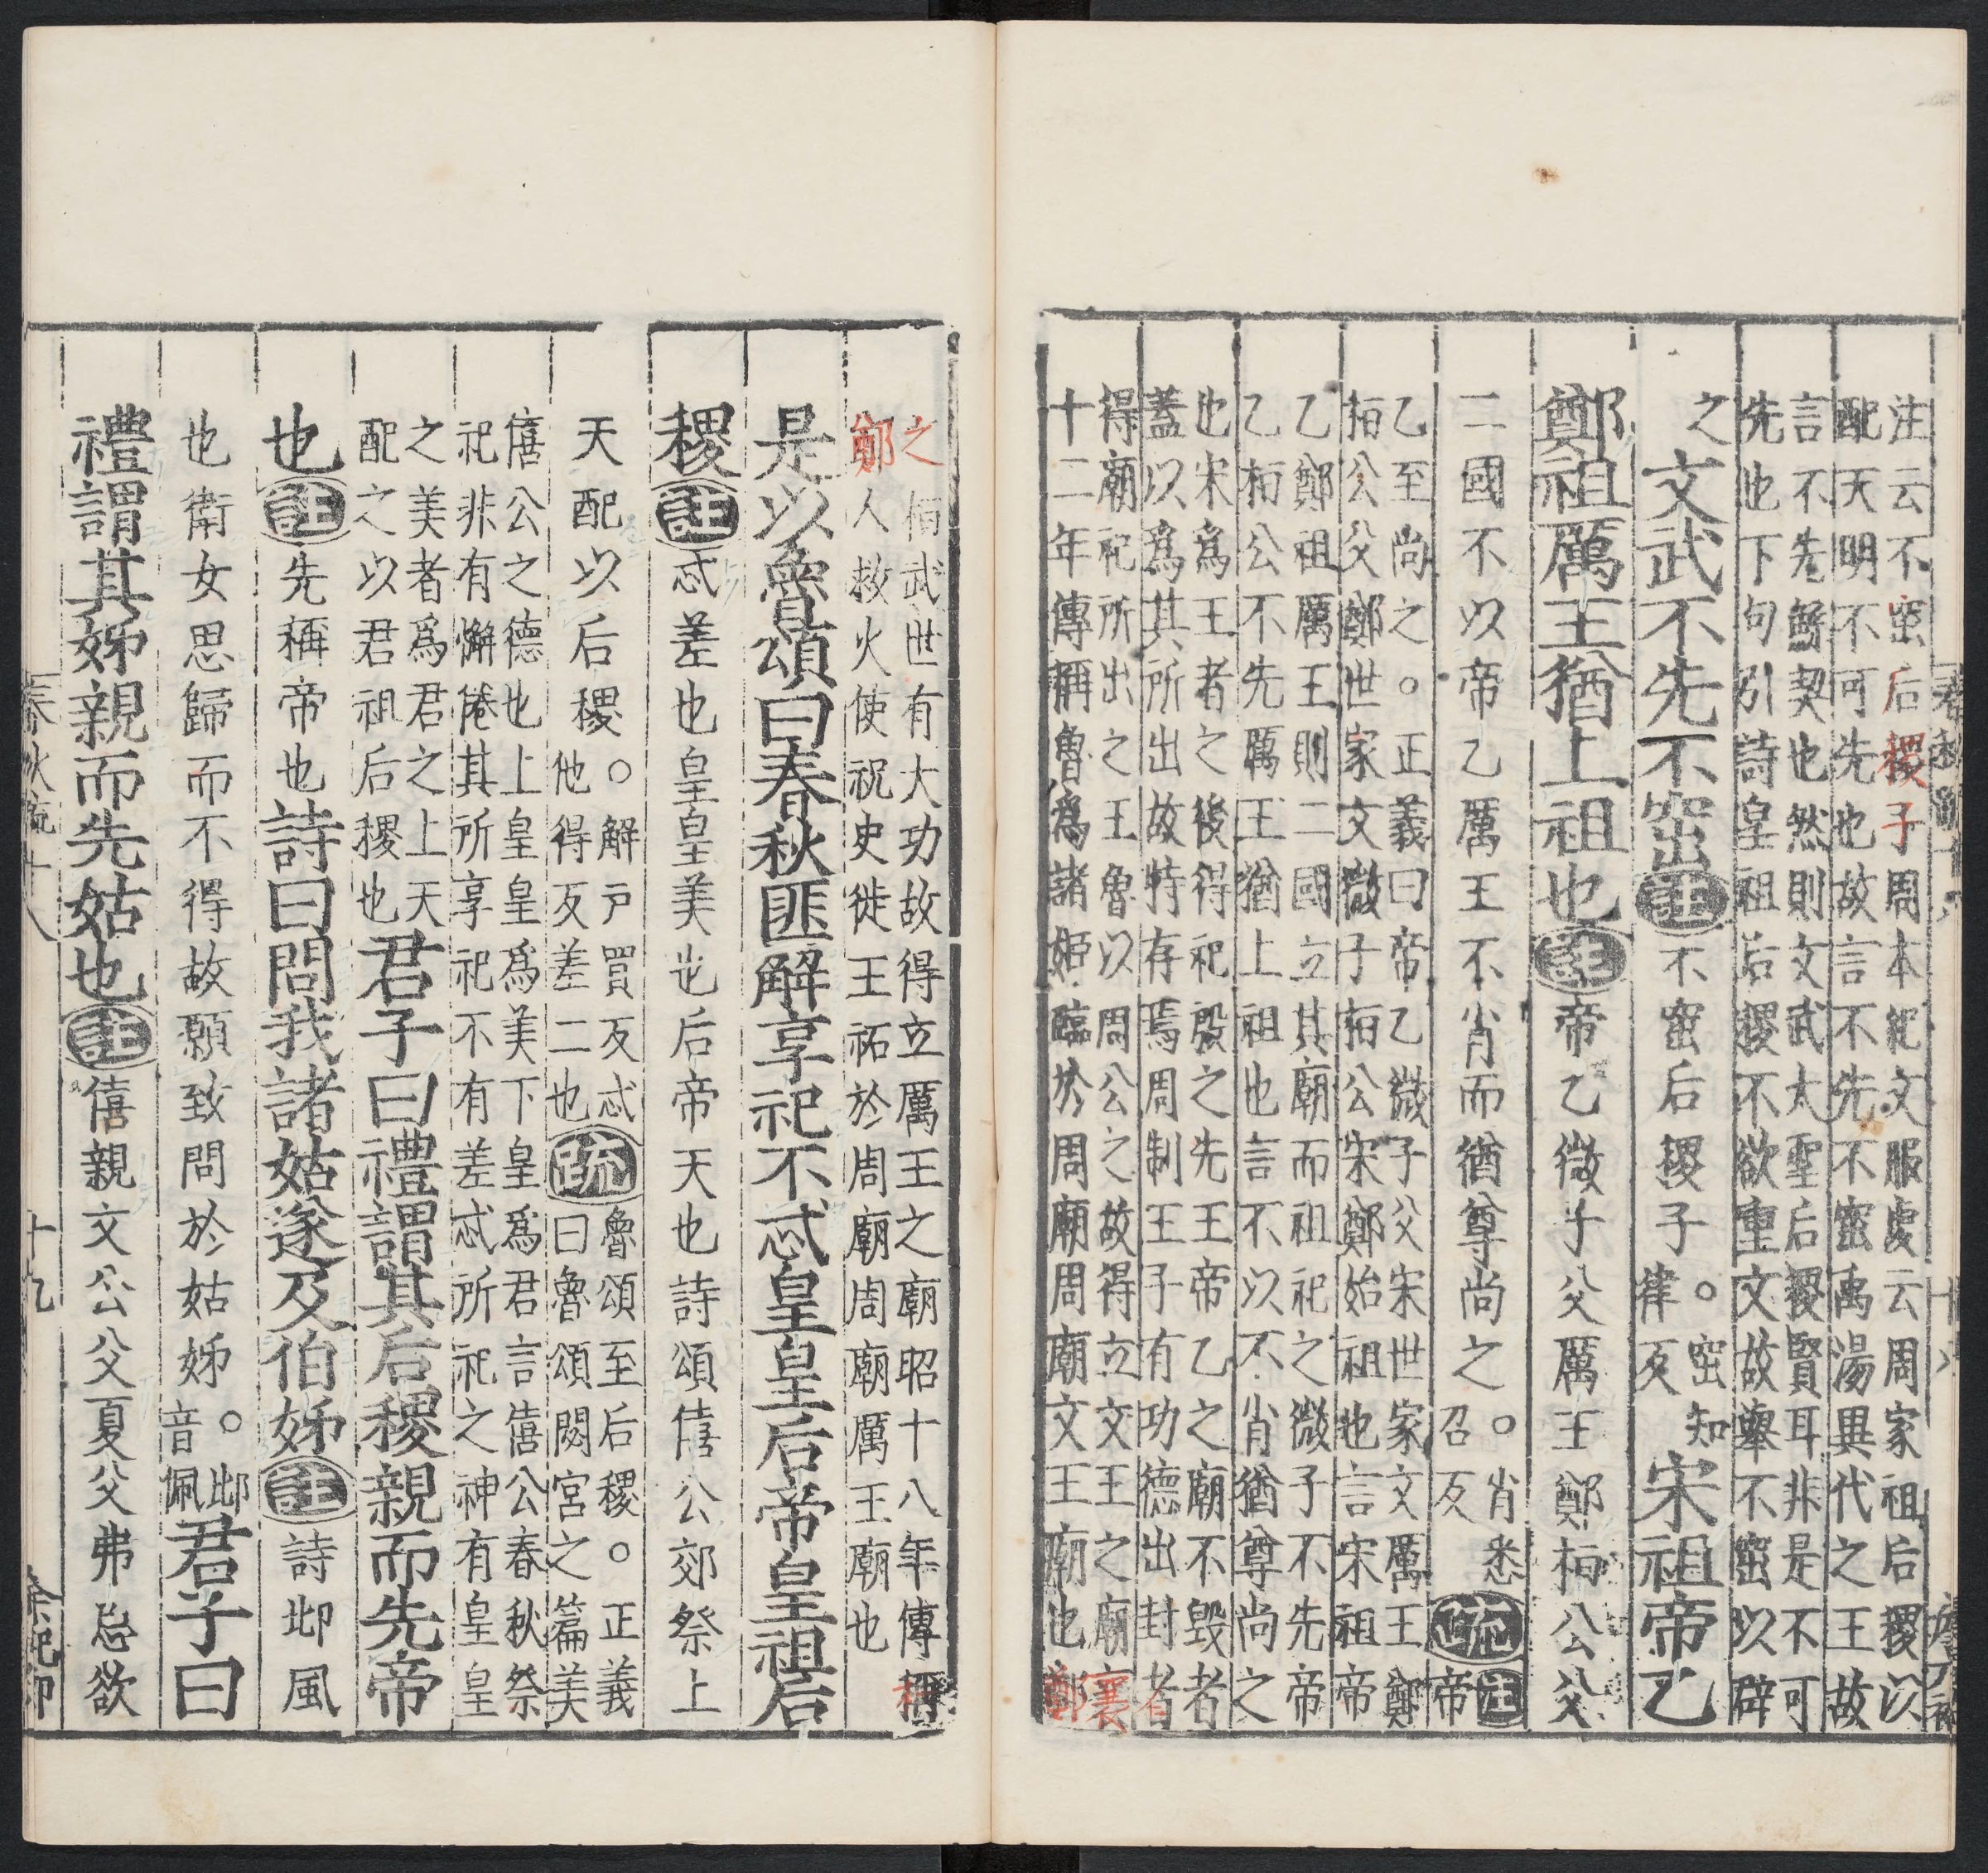 注云不窋后稷子周本紀文服虔云周家祖后稷以
配天明不可先也故言不先不窋禹湯異代之王故
言不先鯀契也然則文武大聖后稷賢耳非是不可
先也下句引詩皇祖后稷不欲重文故舉不窋以辟
之 文武不先不窋註不窋后稷子。窋知律反宋祖帝乙
鄭祖厲王猶上祖也註帝乙微子父厲王鄭桓公父
二國不以帝乙厲王不肖而猶尊尚之。肖悉召反疏註帝
乙至尚之。正義曰帝乙微子父宋世家文厲王鄭
桓公父鄭世家文微子桓公宋鄭始祖也言宋祖帝
乙鄭祖厲王則二國立其廟而祖祀之微子不先帝
乙桓公不先厲王猶上祖也言不以不肖猶尊尚之
也宋爲王者之後得祀殷之先王帝乙之廟不毀者
蓋以爲其所出故特存焉周制王子有功德出封者
得廟祀所出之王魯以周公之故得立文王之廟襄
十二年傳稱魯爲諸姬臨於周廟周廟文王廟也鄭
之桓武世有大功故得立厲王之廟昭十八年傳稱
鄭人救火使祝史徙王祏於周廟周廟厲王廟也
是以魯頌曰春秋匪解享祀不忒皇皇后帝皇祖后
稷註忒差也皇皇美也后帝天也詩頌僖公郊祭上
天配以后稷。解戸買反忒他得反差二也疏魯頌至后稷。正義曰魯頌閟宮之篇美
僖公之德也上皇皇爲美下皇爲君言僖公春秋祭
祀非有懈倦其所享祀不有差忒所祀之神有皇皇
之美者爲君之上天
配之以君祖后稷也君子曰禮謂其后稷親而先帝
也註先稱帝也詩曰問我諸姑遂及伯姊註詩邶風
也衛女思歸而不得故願致問於姑姊。邶音佩君子曰
禮謂其姊親而先姑也註僖親文公父夏父弗忌欲
春秋疏十八
十九
余記卯